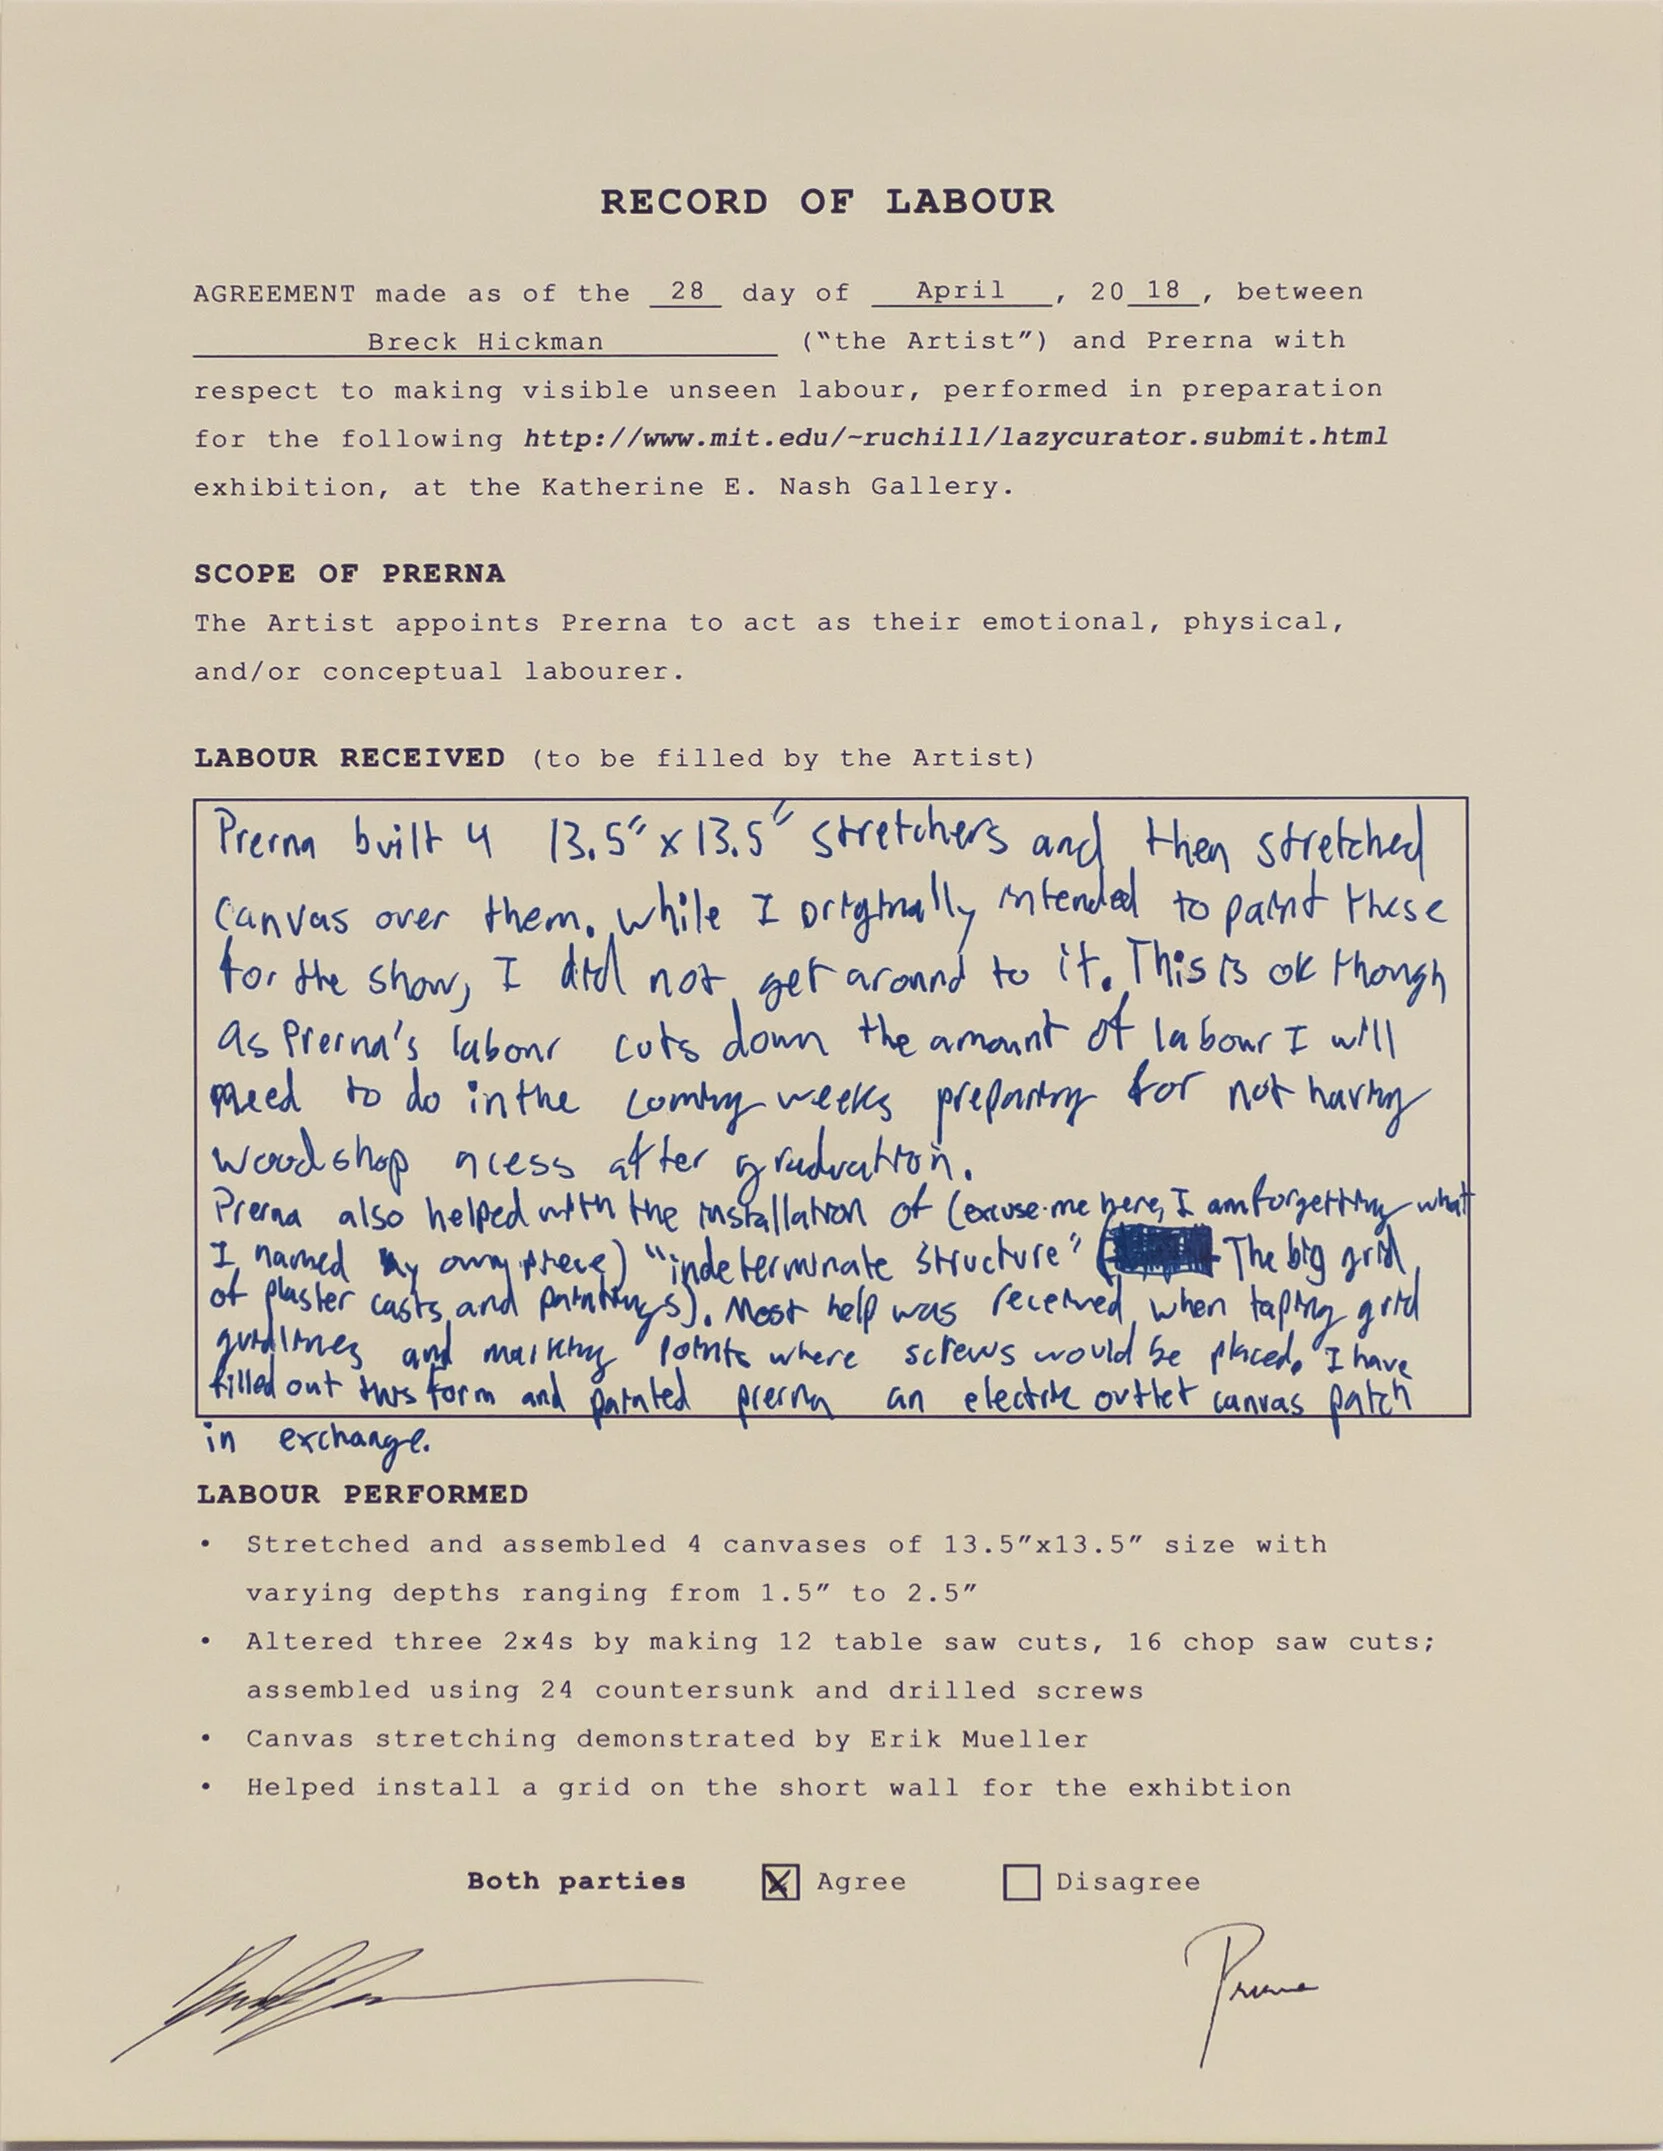 RECORD OF LABOUR
AGREEMENT made as of the 28 day of April, 20 18, between
Breck Hickman ("the Artist") and Prerna with
respect to making visible unseen labour, performed in preparation
for the following http://www.mit.edu/~ruchill/lazycurator.submit.html
exhibition, at the Katherine E. Nash Gallery.
SCOPE OF PRERNA
The Artist appoints Prerna to act as their emotional, physical,
and/or conceptual labourer.
LABOUR RECEIVED (to be filled by the Artist)
Prerna built 4 13.5" x 13.5" stretchers and then stretched
canvas over them. while I originally intended to paint these
for the show, I did not get around to it. This is ok though
as Prerna's labour cuts down the amount of labour I will
need to do in the coming weeks preparing for not having
woodshop acess after graduation.
Prerna also helped with the installation of (excuse me here, I am forgetting what
I named my own piece) "indeterminate structure" ( The big grid
of plaster casts and paintings). Most help was received when taping grid
guidlines and marking points where screws would be placed. I have
filled out this form and painted prerna an electric outlet canvas patch
in exchange.
LABOUR PERFORMED
• Stretched and assembled 4 canvases of 13.5"x13.5" size with
varying depths ranging from 1.5" to 2.5"
• Altered three 2x4s by making 12 table saw cuts, 16 chop saw cuts;
assembled using 24 countersunk and drilled screws
• Canvas stretching demonstrated by Erik Mueller
• Helped install a grid on the short wall for the exhibtion
Both parties Agree Disagree
Prerna